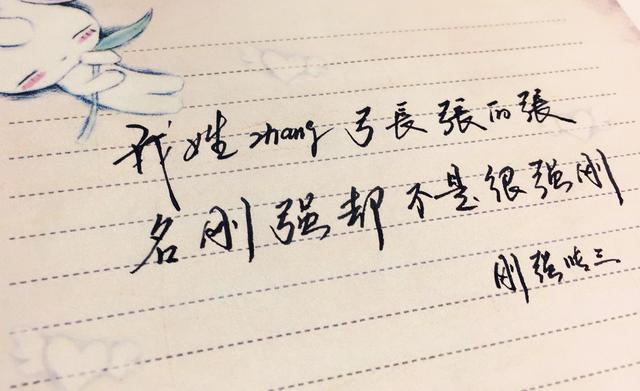 我姓zhang弓長張的張
名刚强却不是很强刚
刚强